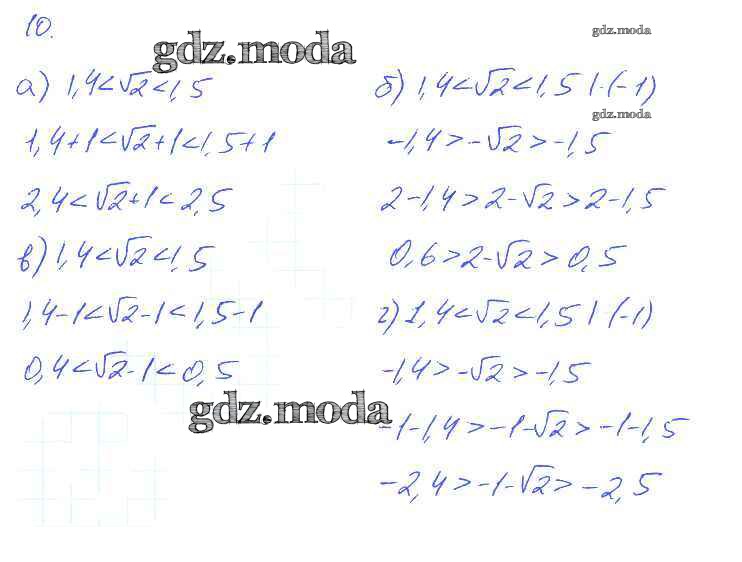 10.
gdz.moda
gdz.moda
а) 1,4<√2<1,5
1,4+1<√2+1<1,5+1
2,4<√2+1<2,5
в) 1,4<√2<1,5
1,4-1<√2-1<1,5-1
0,4<√2-1<0,5
gdz.moda
б) 1,4<√2<1,5 | ·(-1)
gdz.moda
-1,4>-√2>-1,5
2-1,4>2-√2>2-1,5
0,6>2-√2>0,5
г) 1,4<√2<1,5 | (-1)
-1,4>-√2>-1,5
-1-1,4>-1-√2>-1-1,5
-2,4>-1-√2>-2,5